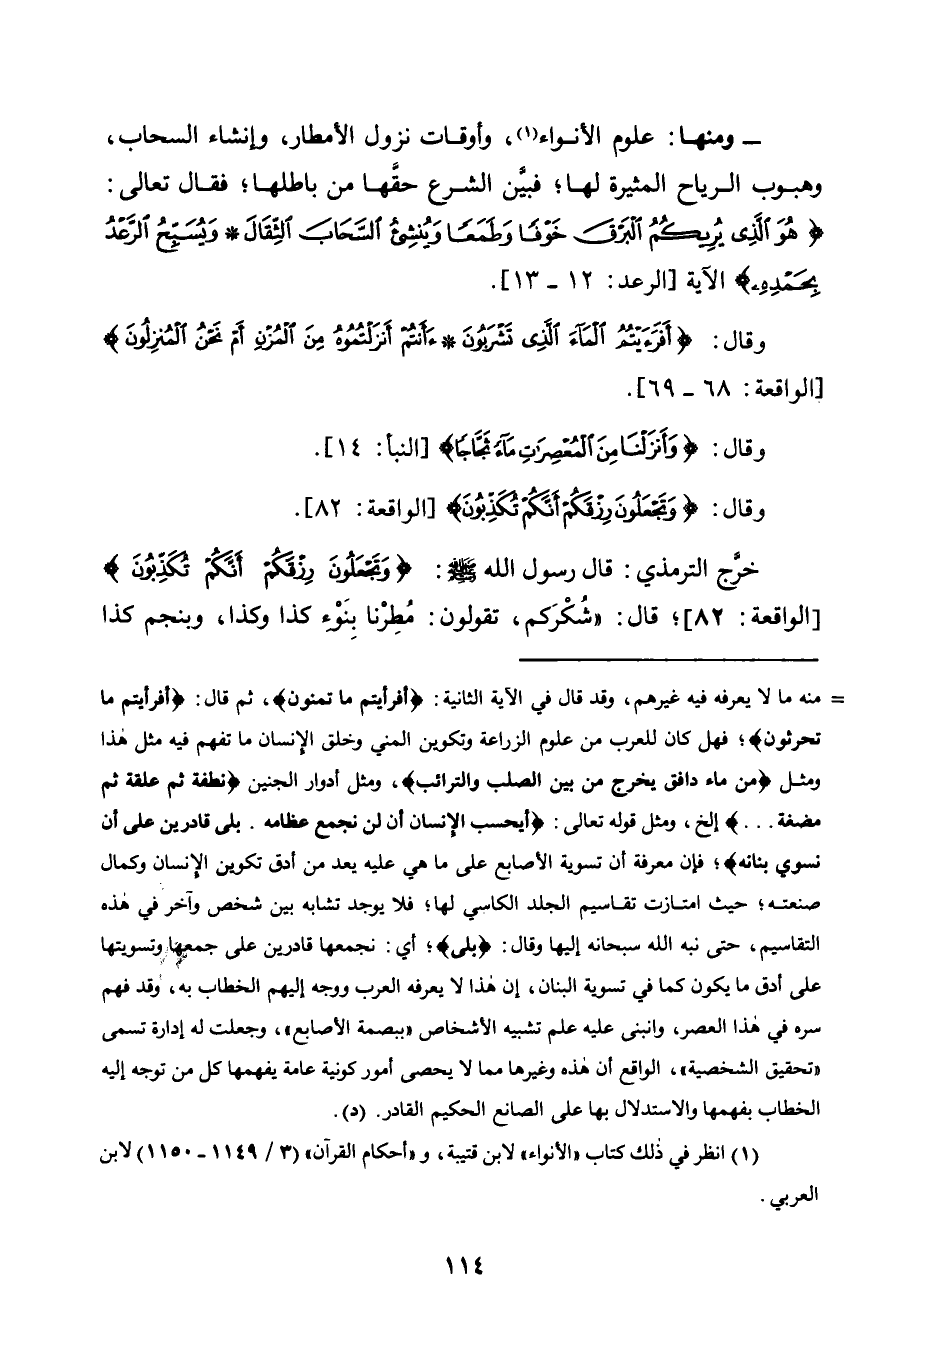 ـ ومنهـا: علوم الأنـواء(١)، وأوقـات نزول الأمطار، وإنشاء السحاب،
وهبوب الـرياح المثيرة لهـا؛ فبيَّن الشـرع حقَّهـا من باطلهـا؛ فقـال تعالى:
﴿هُوَ ٱلَّذِى يُرِيكُمُ ٱلْبَرْقَ خَوْفًا وَطَمَعًا وَيُنشِئُ ٱلسَّحَابَ ٱلثِّقَالَ * وَيُسَبِّحُ ٱلرَّعْدُ
بِحَمْدِهِۦ﴾ الآية [الرعد: ١٢ ـ ١٣].
وقال: ﴿أَفَرَءَيْتُمُ ٱلْمَآءَ ٱلَّذِى تَشْرَبُونَ * ءَأَنتُمْ أَنزَلْتُمُوهُ مِنَ ٱلْمُزْنِ أَمْ نَحْنُ ٱلْمُنزِلُونَ﴾
[الواقعة: ٦٨ ـ ٦٩].
وقال: ﴿وَأَنزَلْنَا مِنَ ٱلْمُعْصِرَٰتِ مَآءً ثَجَّاجًا﴾ [النبأ: ١٤].
وقال: ﴿وَتَجْعَلُونَ رِزْقَكُمْ أَنَّكُمْ تُكَذِّبُونَ﴾ [الواقعة: ٨٢].
خرَّج الترمذي: قال رسول الله ﷺ: ﴿وَتَجْعَلُونَ رِزْقَكُمْ أَنَّكُمْ تُكَذِّبُونَ﴾
[الواقعة: ٨٢]؛ قال: «شُكْرَكم، تقولون: مُطِرْنا بِنَوْءِ كذا وكذا، وبنجم كذا
= منه ما لا يعرفه فيه غيرهم، وقد قال في الآية الثانية: ﴿أفرأيتم ما تمنون﴾، ثم قال: ﴿أفرأيتم ما
تحرثون﴾؛ فهل كان للعرب من علوم الزراعة وتكوين المني وخلق الإنسان ما تفهم فيه مثل هٰذا
ومثـل ﴿من ماء دافق يخرج من بين الصلب والترائب﴾، ومثل أدوار الجنين ﴿نطفة ثم علقة ثم
مضغة...﴾ إلخ، ومثل قوله تعالى: ﴿أيحسب الإنسان أن لن نجمع عظامه . بلى قادرين على أن
نسوي بنانه﴾؛ فإن معرفة أن تسوية الأصابع على ما هي عليه يعد من أدق تكوين الإنسان وكمال
صنعتـه؛ حيث امتـازت تقـاسيم الجلد الكاسي لها؛ فلا يوجد تشابه بين شخص وآخر في هٰذه
التقاسيم، حتى نبه الله سبحانه إليها وقال: ﴿بلى﴾؛ أي: نجمعها قادرين على جمعها وتسويتها
على أدق ما يكون كما في تسوية البنان، إن هٰذا لا يعرفه العرب ووجه إليهم الخطاب به، وقد فهم
سره في هٰذا العصر، وانبنى عليه علم تشبيه الأشخاص «ببصمة الأصابع»، وجعلت له إدارة تسمى
«تحقيق الشخصية»، الواقع أن هٰذه وغيرها مما لا يحصى أمور كونية عامة يفهمها كل من توجه إليه
الخطاب بفهمها والاستدلال بها على الصانع الحكيم القادر. (د).
(١) انظر في ذٰلك كتاب «الأنواء» لابن قتيبة، و«أحكام القرآن» (٣ / ١١٤٩ ـ ١١٥٠) لابن
العربي.
١١٤